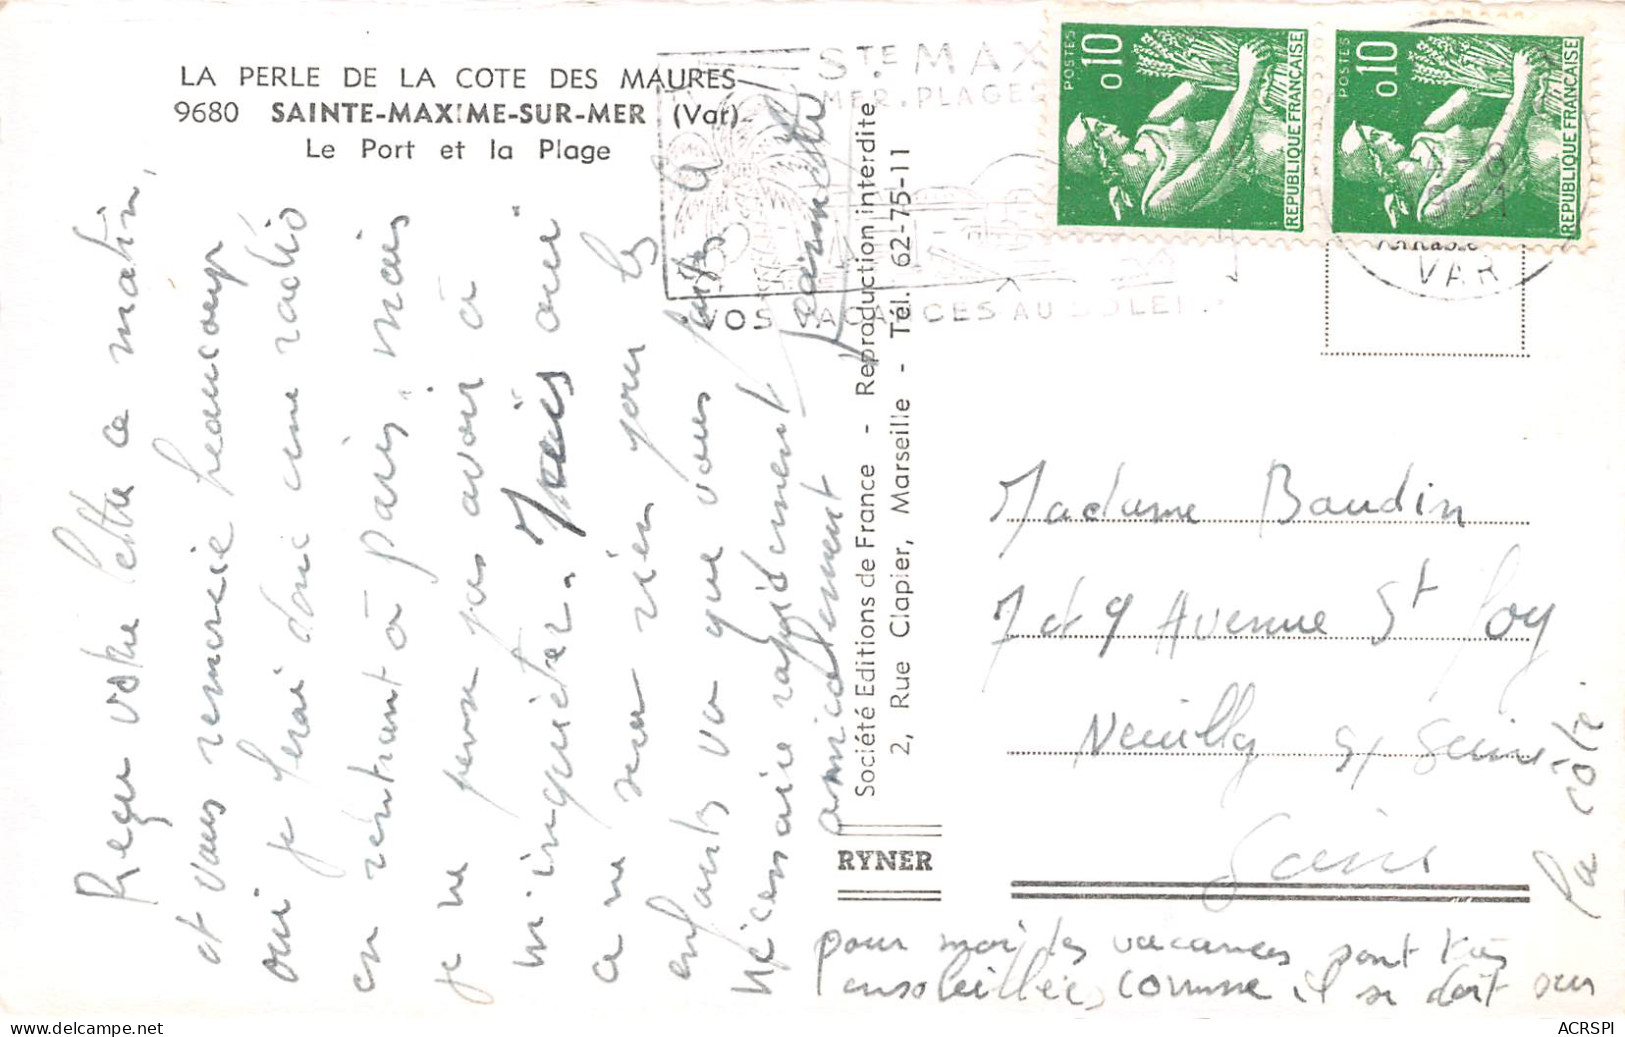 LA PERLE DE LA COTE DES MAURES
9680 SAINTE-MAXIME-SUR-MER (Var)
Le Port et la Plage
Reçu votre lettre ce matin,
et vous remercie beaucoup
oui je ferai donc une radio
en rentrant à paris, mais
je ne pense pas avoir à
m'inquiéter. Mais oui
a ne rien pour les
enfants va que vous
nécessaire rapidement
amicalement
Jeannette
Société Editions de France - Reproduction interdite
2, Rue Clapier, Marseille - Tél. 62-75-11
RYNER
STE MAX
MER. PLAGES
VOS VACANCES AU SOLEIL
POSTES
0,10
REPUBLIQUE FRANÇAISE
POSTES
0,10
REPUBLIQUE FRANÇAISE
-8
1961
VAR
Madame Baudin
7 et 9 Avenue St Foy
Neuilly s/ Seine
Seine
pour moi, les vacances sont très
ensoleillées comme il se doit sur
la côte.
ACRSPI